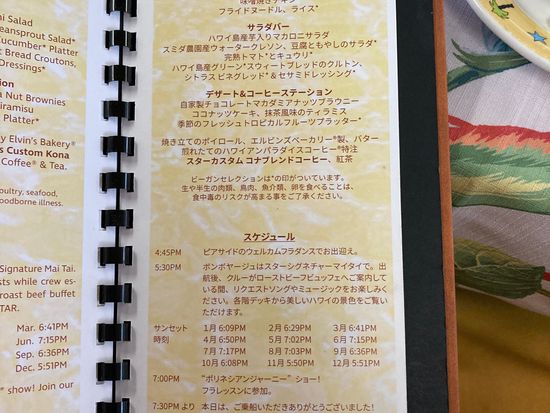 ni Salad
eansprout Salad*
ucumber* Platter
t Bread Croutons,
Dressings*
ion
a Nut Brownies
iramisu
Platter
y Elvin's Bakery®
s Custom Kona
Coffee® & Tea.
oultry, seafood,
oodborne illness.
Signature Mai Tai.
sts while crew es-
roast beef buffet
TAR.
Mar. 6:41PM
Jun. 7:15PM
Sep. 6:36PM
Dec. 5:51PM
* show! Join our
味噌焼きチキン
フライドヌードル、ライス*
サラダバー
ハワイ島産芋入りマカロニサラダ
スミダ農園産ウォータークレソン、豆腐ともやしのサラダ*
完熟トマト*とキュウリ*
ハワイ島産グリーン*スウィートブレッドのクルトン、
シトラス ビネグレッド* & セサミドレッシング*
デザート&コーヒーステーション
自家製チョコレートマカダミアナッツブラウニー
ココナッツケーキ、抹茶風味のティラミス
季節のフレッシュトロピカルフルーツプラッター*
焼き立てのポイロール、エルビンズベーカリー®製、バター
煎れたてのハワイアンパラダイスコーヒー®特注
スターカスタム コナブレンドコーヒー、紅茶
ビーガンセレクションは*の印がついています。
生や半生の肉類、鳥肉、魚介類、卵を食べることは、
食中毒のリスクが高まる事をご了承ください。
スケジュール
4:45PM ピアサイドのウェルカムフラダンスでお出迎え。
5:30PM ボンボヤージュはスターシグネチャーマイタイで。出
航後、クルーがローストビーフビュッフェへご案内して
いる間、リクエストソングやミュージックをお楽しみく
ださい。各階デッキから美しいハワイの景色をご覧い
ただけます。
サンセット 1月 6:09PM 2月 6:29PM 3月 6:41PM
時刻 4月 6:50PM 5月 7:02PM 6月 7:15PM
7月 7:17PM 8月 7:03PM 9月 6:36PM
10月 6:08PM 11月 5:50PM 12月 5:51PM
7:00PM “ポリネシアンジャーニー” ショー!
フラレッスンに参加。
7:30PM より 本日は、ご乗船いただきありがとうございました!